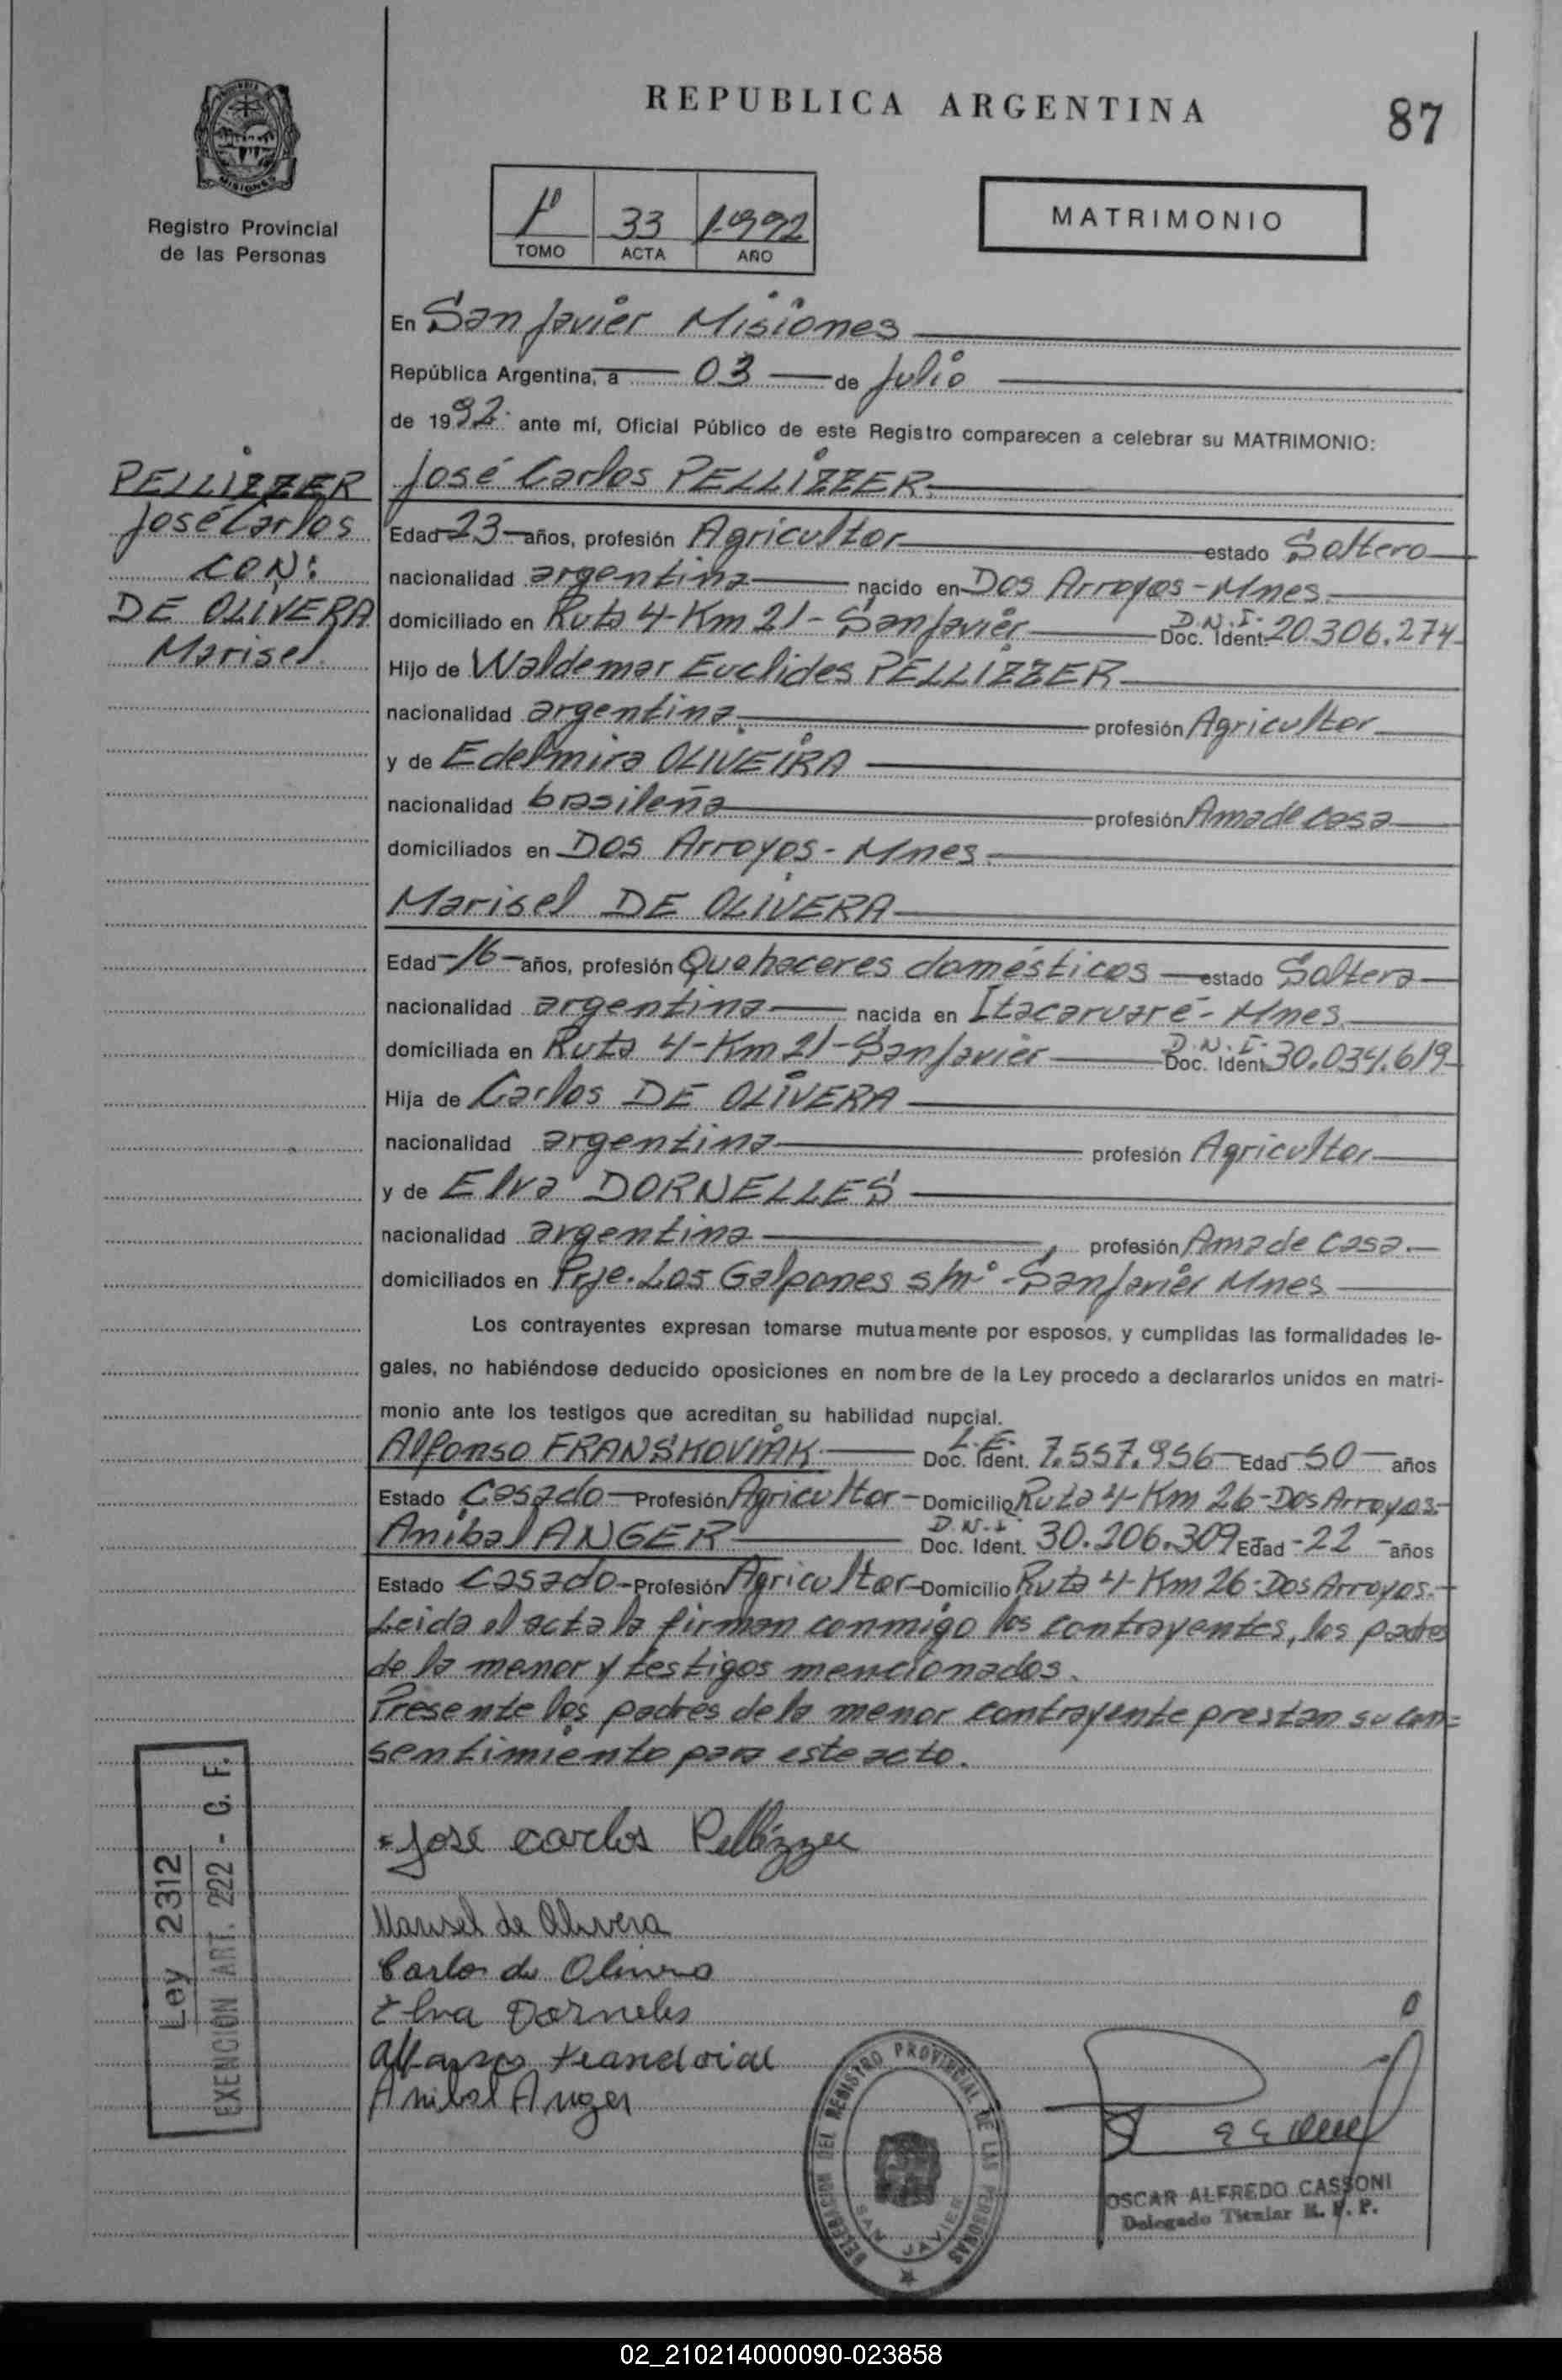 REPUBLICA ARGENTINA
87
MISIONES
Registro Provincial
de las Personas
1º 33 1992
TOMO ACTA AÑO
MATRIMONIO
En San Javier Misiones
República Argentina, a 03 de Julio
de 1992. ante mí, Oficial Público de este Registro comparecen a celebrar su MATRIMONIO:
PELLIZZER
José Carlos
CON:
DE OLIVERA
Marisel.
José Carlos PELLIZZER.
Edad 23 años, profesión Agricultor estado Soltero
nacionalidad argentina nacido en Dos Arroyos - Mnes.
domiciliado en Ruta 4 - Km 21 - San Javier D.N.I. Doc. Ident. 20.306.274
Hijo de Waldemar Euclides PELLIZZER
nacionalidad argentina. profesión Agricultor
y de Edelmira OLIVEIRA
nacionalidad brasileña profesión Ama de casa
domiciliados en Dos Arroyos - Mnes.
Marisel DE OLIVERA
Edad -16- años, profesión Quehaceres domésticos estado Soltera
nacionalidad argentina nacida en Itacaruaré - Mnes.
domiciliada en Ruta 4 - Km 21 - San Javier D.N.I. Doc. Ident. 30.034.619
Hija de Carlos DE OLIVERA
nacionalidad argentina profesión Agricultor
y de Elva DORNELLES
nacionalidad argentina profesión Ama de casa.
domiciliados en Prje. Los Galpones s/nº - San Javier Mnes
Los contrayentes expresan tomarse mutuamente por esposos, y cumplidas las formalidades le-
gales, no habiéndose deducido oposiciones en nombre de la Ley procedo a declararlos unidos en matri-
monio ante los testigos que acreditan su habilidad nupcial.
Alfonso FRANSKOVIAK L.E. Doc. Ident. 7.557.956 Edad 50 años
Estado Casado Profesión Agricultor - Domicilio Ruta 4 - Km 26 - Dos Arroyos -
Anibal ANGER D.N.I. Doc. Ident. 30.206.309 Edad - 22 - años
Estado Casado - Profesión Agricultor - Domicilio Ruta 4 - Km 26 - Dos Arroyos. -
Leida el acta la firman conmigo los contrayentes, los padres
de la menor y testigos mencionados.
Presente los padres de la menor contrayente prestan su con=
sentimiento para este acto.
José Carlos Pellizzer
Marisel de Olivera
Carlos de Olivera
Elva Dorneles
Anibal Anger
Ley 2312
EXENCION ART. 222 - C. F.
DELEGACION DEL REGISTRO PROVINCIAL DE LAS PERSONAS
SAN JAVIER
OSCAR ALFREDO CASSONI
Delegado Titular R. P. P.
02_210214000090-023858